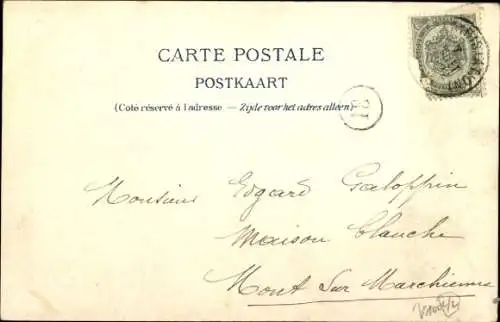 CARTE POSTALE
POSTKAART
(Coté réservé à l'adresse — Zijde voor het adres alleen)
Monsieur Edgard Galoppin
Maison blanche
Mont Sur Marchienne